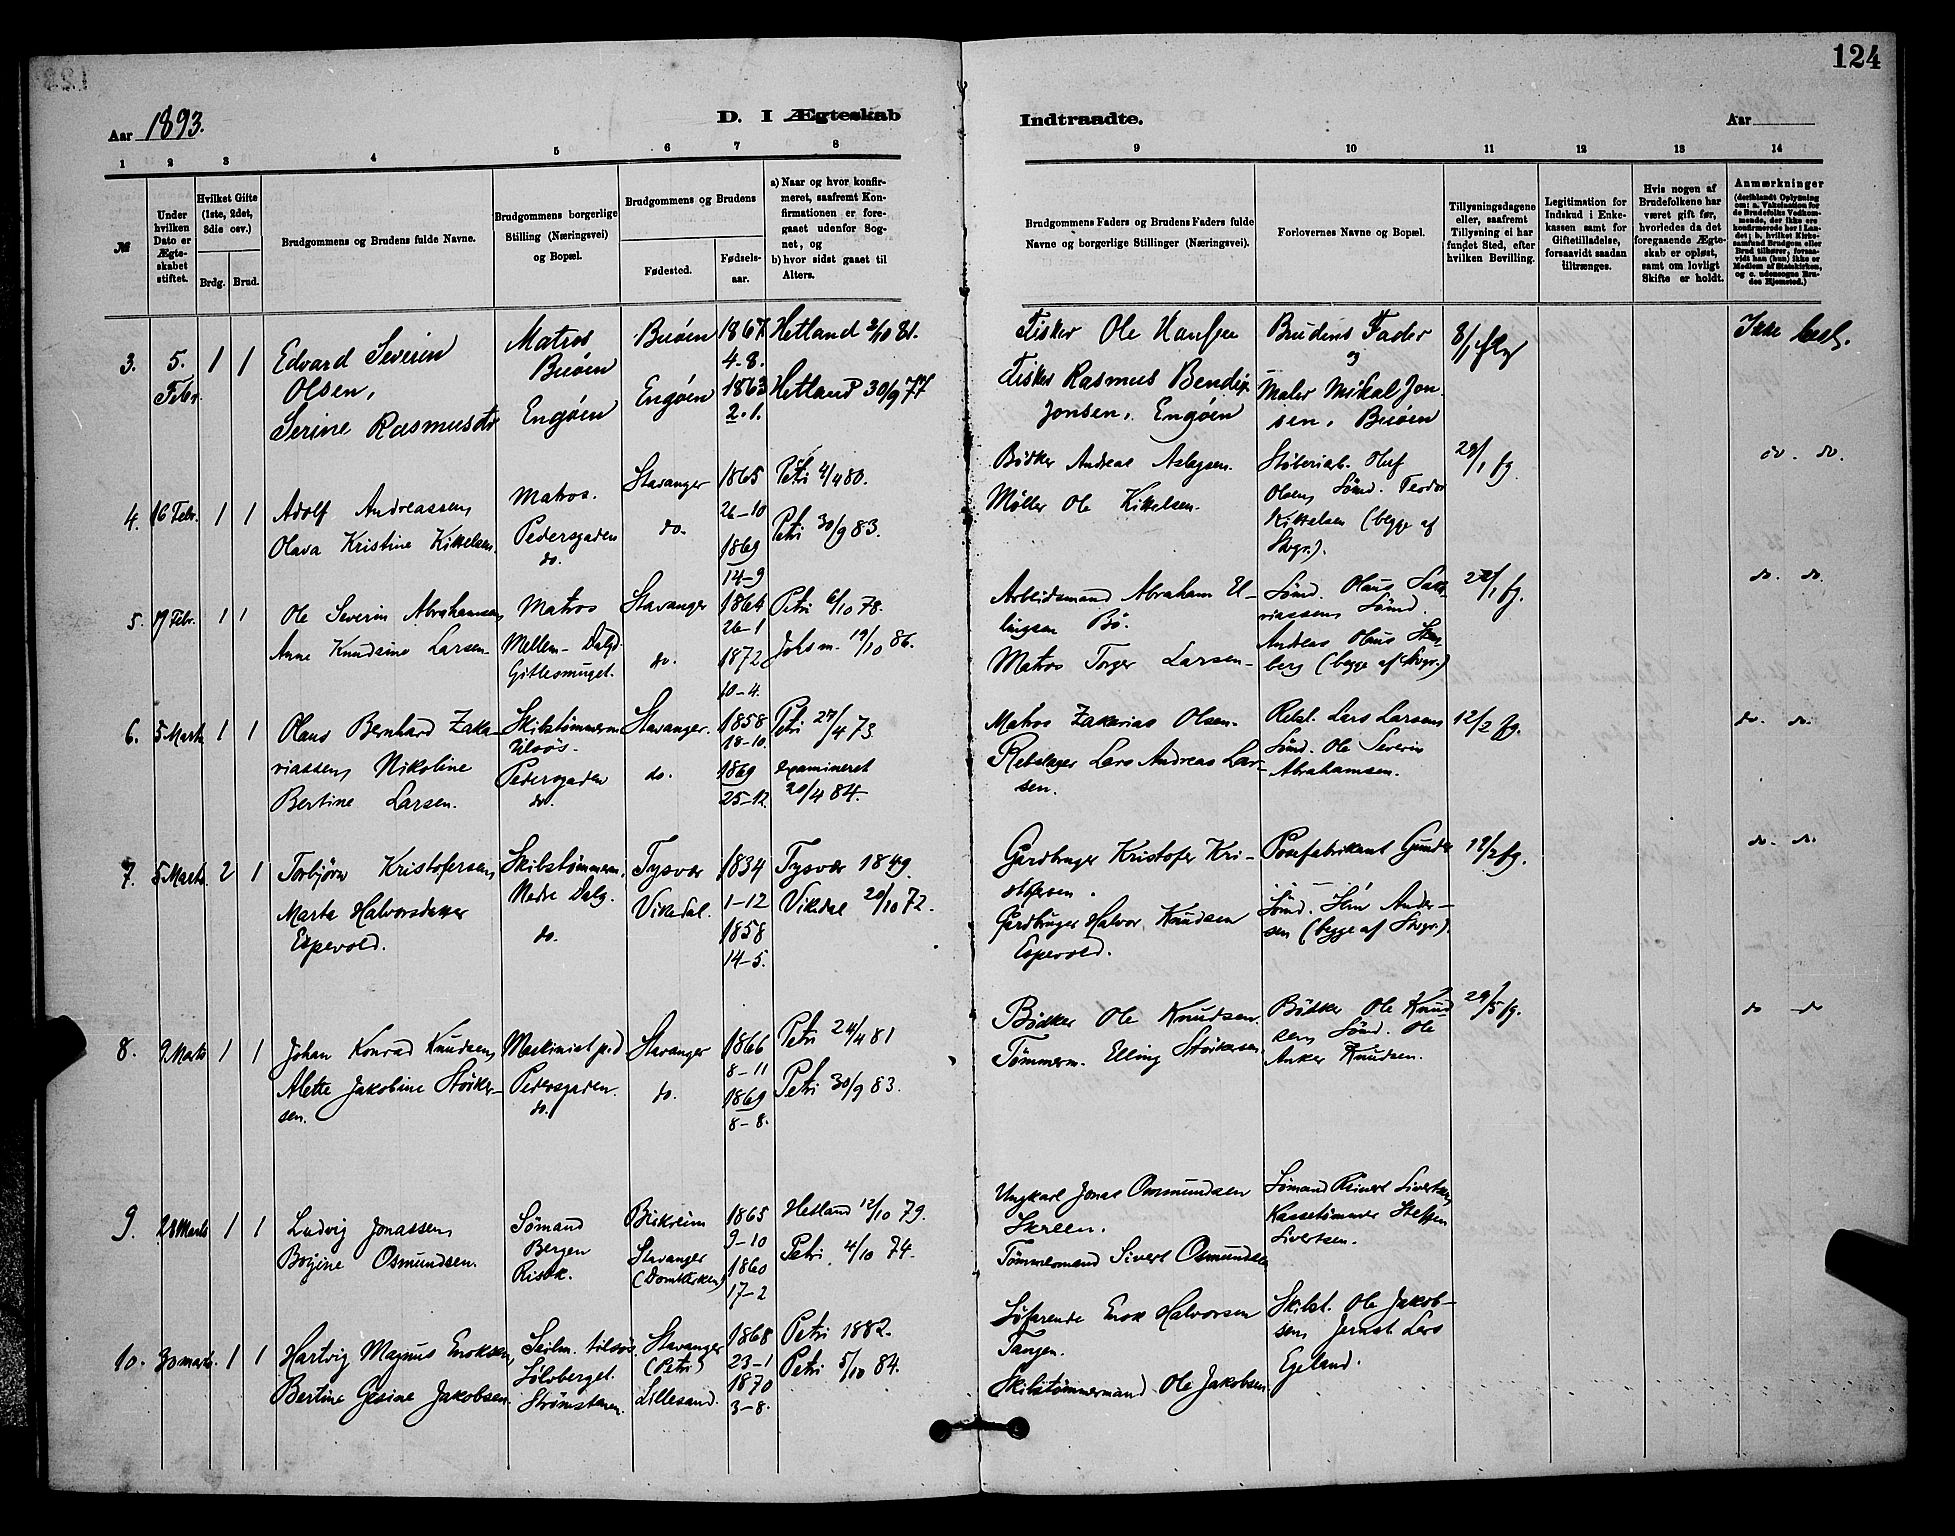 124
Aar 1893.
D. I Ægteskab
Indtraadte.
Aar
1 2 3 4 5 6 7 8 9 10 11 12 13 14
№
Under hvilken Dato er Ægteskabet stiftet.
Hvilket Gifte (1ste, 2det, 3die osv.)
Brdg. Brud.
Brudgommens og Brudens fulde Navne.
Brudgommens borgerlige Stilling (Næringsvei) og Bopæl.
Brudgommens og Brudens
Fødested.
Fødselsaar.
a) Naar og hvor konfirmeret, saafremt Konfirmationen er foregaaet udenfor Sognet, og
b) hvor sidst gaaet til Alters.
Brudgommens Faders og Brudens Faders fulde Navne og borgerlige Stillinger (Næringsvei).
Forlovernes Navne og Bopæl.
Tillysningsdagene eller, saafremt Tillysning ei har fundet Sted, efter hvilken Bevilling.
Legitimation for Indskud i Enkekassen samt for Giftetilladelse, forsaavidt saadan tiltrænges.
Hvis nogen af Brudefolkene har været gift før, hvorledes da det foregaaende Ægteskab er opløst, samt om lovligt Skifte er holdt.
Anmærkninger
3. 5. Febr. 1 1
Edvard Severin
Olsen,
Serine Rasmusdtr
Matros
Buøen
Engøen
Buøen
Engøen
1867
4-8.
1863
2-1.
Hetland 2/10 81.
Hetland 30/9 77
Fisker Ole
Fisker Rasmus Bendix
Jonsen, Engøen
Brudens Fader
og
Maler Mikal Jon
sen, Buøen
8/1
Ikke
4. 16 Febr. 1 1
Adolf Andreassen,
Olava Kristine Kittelsen.
Matros.
Pedersgaden
do.
Stavanger
do.
1865
26-10
1869
14-9
Petri 4/4 80.
Petri 30/9 83.
Bødker Andreas Aslagsen.
Møller Ole Kittelsen.
Støberiarb. Oluf
Olsen, Sømd. Teodor
Kittelsen (begge af
Stvgr.).
29/1 fg.
do. do.
5. 19 Febr. 1 1
Ole Severin Abrahamsen,
Anne Knudsine Larsen.
Matros
Mellem-Dalgd.
Gitlesmuget.
Stavanger
do.
1864
26-1
1872
10-4.
Petri 6/10 78.
Johs m. 19/10 86.
Arbeidsmand Abraham El-
lingsen Bø.
Matros Torger Larsen-
Sømd. Olaus Saka
riassen, Sømd.
Andreas Olaus
berg (begge af Stvgr.)
fg.
do. do.
6. 5 Marts 1 1
Olaus Bernhard Zaka-
riassen, Nikoline
Bertine Larsen.
Skibstømmerm
tilsøs-
Pedersgaden
do.
Stavanger.
do.
1858
18-10.
1869
25-12.
Petri 27/4 73
examineret
20/4 84.
Matros Zakarias Olsen.
Rebslager Lars Andreas Lar-
sen.
Rebsl. Lars Larsen,
Sømd. Ole Severin
Abrahamsen.
12/2 fg.
do. do.
7. 5 Marts 2 1
Torbjørn Kristofersen,
Marta Halvorsdatter
Espevold.
Skibstømmerm.
Nedre Dalg.
do.
Tysvær
Vikedal.
1834
1-12
1858
14-5.
Tysvær 1849.
Vikedal 20/10 72.
Gardbruger Kristofer Kri-
stofersen.
Gardbruger Halvor Knudsen
Espevold.
Posefabrikant Gunder
Sømd. Ander-
sen (begge af Stvgr.).
19/2 fg.
do. do.
8. 9 Marts 1 1
Johan Konrad Knudsen,
Alette Jakobine Størker-
sen.
Maskinist p.d
Pedersgaden.
do.
Stavanger
do.
1866
8-11
1869
8-8.
Petri 24/4 81
Petri 30/9 83.
Bødker Ole Knudsen.
Tømmerm. Elling Størkersen.
Bødker Ole Knud
sen, Sømd. Ole
Anker Knudsen.
fg.
do do
9. 28 Marts 1 1
Ludvig Jonassen,
Bojine Osmundsen.
Sømand
Bergen
Risbk.
Birkreim
Stavanger
(Domkirken)
1865
9-10
1860
17-2
Hetland 12/10 79.
Petri, 4/10 74.
Ungkarl Jonas Omundsen
Skreen.
Tømmermand Sivert Osmundsen
Sømand Reinert Sivertsen,
Kassetømmer Steffen
Sivertsen.
10. 30 marts. 1 1
Hartvig Magnus Enoksen,
Bertine Gesine Jakobsen.
Seilm. tilsøs
Sølvberget.
Strømstenen.
Stavanger
(Petri)
Lillesand.
1868
23-1
1870
3-8.
Petri 1882.
Petri 5/10 84.
Søfarende Enok Halvorsen
Tangen.
Skibstømmermand Ole Jakobsen.
Skibst. Ole Jakob-
sen, Jernst. Lars
Egeland.